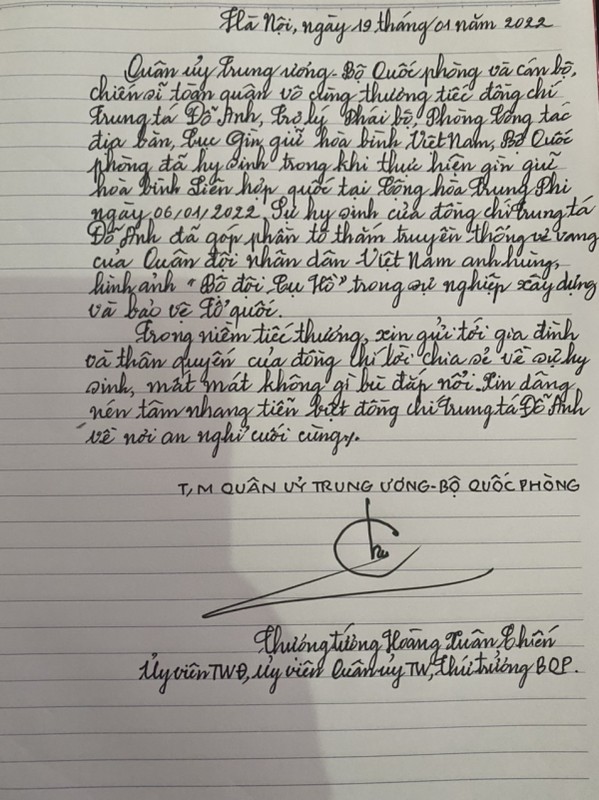 Hà Nội, ngày 19 tháng 01 năm 2022
Quân ủy Trung ương - Bộ Quốc phòng và cán bộ,
chiến sĩ toàn quân vô cùng thương tiếc đồng chí
Trung tá Đỗ Anh, Trợ lý Phái bộ, Phòng Công tác
địa bàn, Cục Gìn giữ hòa bình Việt Nam, Bộ Quốc
phòng đã hy sinh trong khi thực hiện gìn giữ
hòa bình Liên hợp quốc tại Cộng hòa Trung Phi
ngày 06/01/2022. Sự hy sinh của đồng chí Trung tá
Đỗ Anh đã góp phần tô thắm truyền thống vẻ vang
của Quân đội nhân dân Việt Nam anh hùng,
hình ảnh "Bộ đội Cụ Hồ" trong sự nghiệp xây dựng
và bảo vệ Tổ quốc.
Trong niềm tiếc thương, xin gửi tới gia đình
và thân quyến của đồng chí lời chia sẻ về sự hy
sinh, mất mát không gì bù đắp nổi. Xin dâng
nén tâm nhang tiễn biệt đồng chí Trung tá Đỗ Anh
về nơi an nghỉ cuối cùng./.
T/M QUÂN UỶ TRUNG ƯƠNG - BỘ QUỐC PHÒNG
Thượng tướng Hoàng Xuân Chiến
Ủy viên TWĐ, Ủy viên Quân ủy TW, Thứ trưởng BQP.